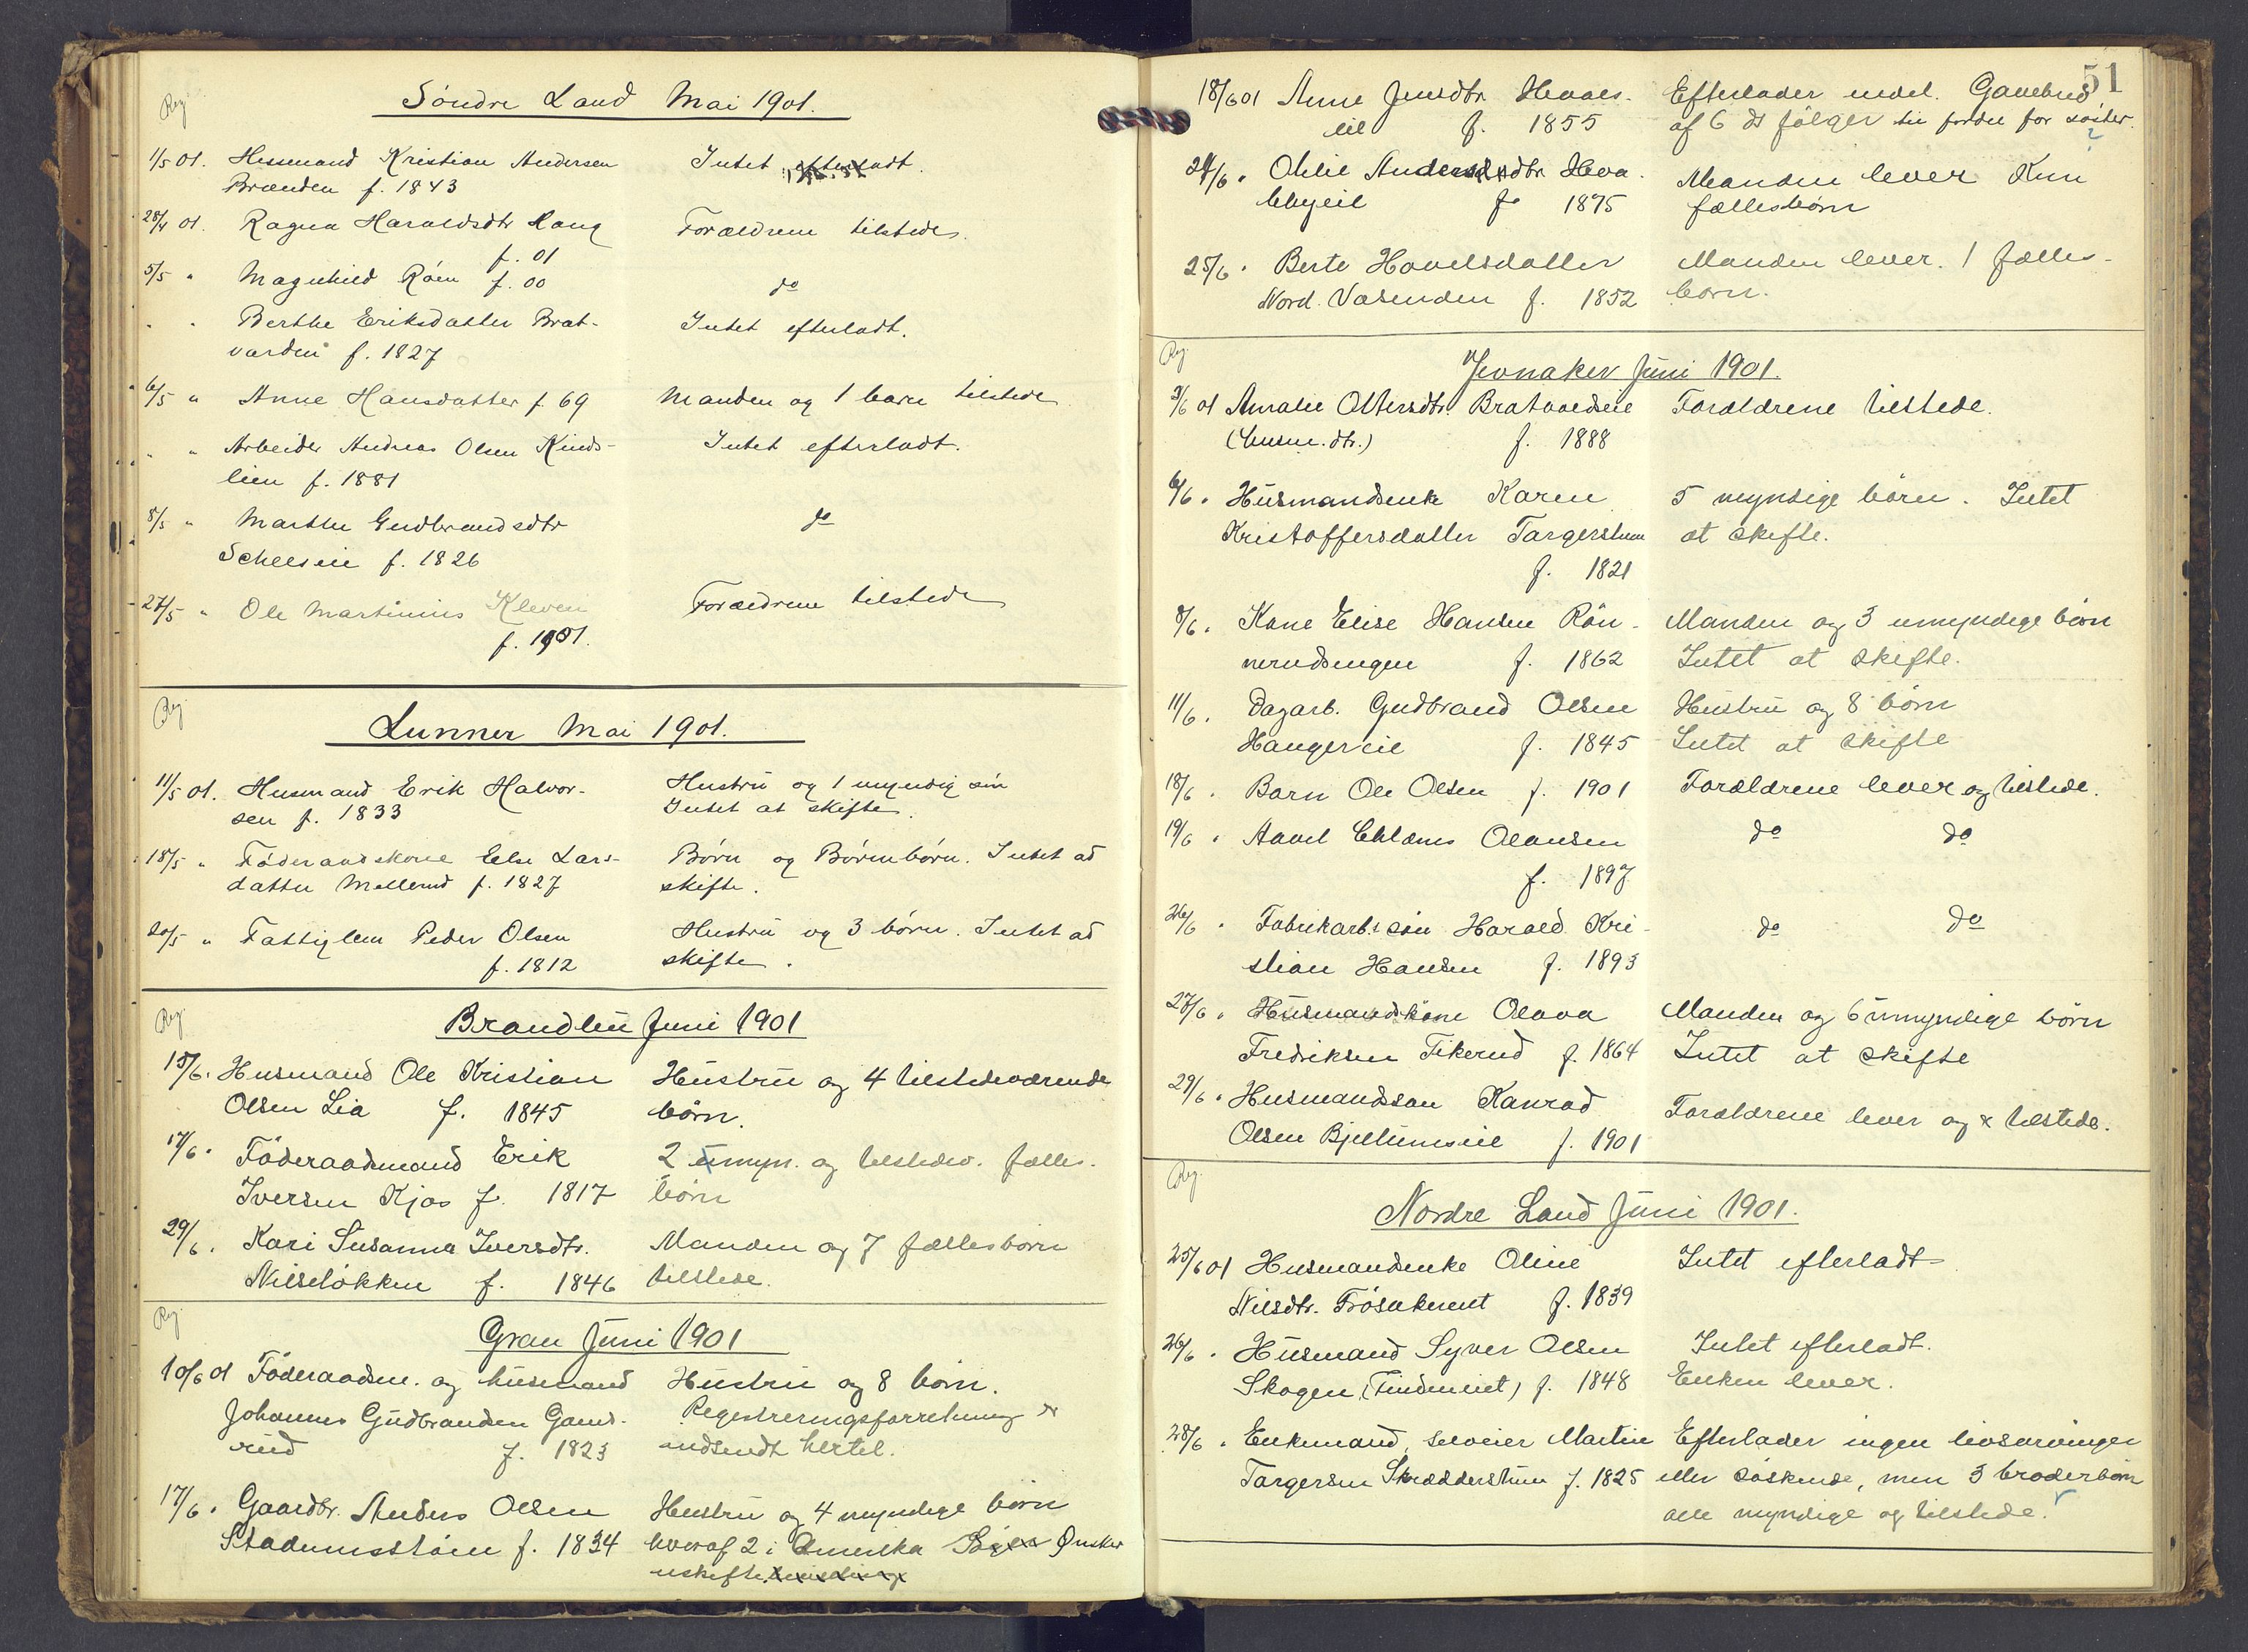 Reg.
Söndre Land Mai 1901.
1/5 01. Husmand Kristian Andersen Intet efterladt.
Brænden f. 1843
28/4 01. Ragna Haraldsdtr Haug Forældrene tilstede.
f. 01
5/5 " Magnhild Röen f. 00 do
" " Berthe Eriksdatter Brat- Intet efterladt.
varden f. 1827
6/5 " Anne Hansdatter f 69 Manden og 1 barn tilstede
" " Arbeider Andreas Olsen Kinds- Intet efterladt.
lien f. 1881
8/5 " Marthe Gudbrandsdtr do
f. 1826
27/5 " Ole Martinius Kleven Forældrene tilstede
f. 1901.
Reg.
Lunner Mai 1901.
11/5 01. Husmand Erik Halvor- Hustru og 1 myndig sön
sen f. 1833 Intet at skifte.
18/5 " Föderaadskone Else Lars- Børn og Børnebørn. Intet at
datter Mellerud f. 1827 skifte.
20/5 " Fattiglem Peder Olsen Hustru og 3 börn. Intet at
f. 1812 skifte.
Reg.
Brandbu Juni 1901
15/6. Husmand Ole Kristian Hustru og 4 tilstedeværende
Olsen Lia f. 1845 börn.
17/6. Föderaadsmand Erik 2 umyn. og tilstedev. fælles-
Iversen Kjos f. 1817 börn
29/6. Kari Susanna Iversdtr. Manden og 7 fællesbörn
Nilseløkken f. 1846 tilstede.
Reg.
Gran Juni 1901
10/6 01 Föderaadsm. og husmand Hustru og 8 börn.
Johannes Gudbrandsen Gams- Registreringsforretning er
rud f. 1823 indsendt hertil.
17/6. Gaardbr. Anders Olsen Hustru og 4 myndige börn
Stadumsstöen f. 1834 hvoraf 2 i Amerika Ønsker
uskifte
51
18/6 01 Anne Jensdtr Hvals- Efterlader Gavebrev
lie f. 1855 af 6 ds følger til fordel for søster.
24/6. Othilie Andersdtr Hva- Manden lever Kun
f. 1875 fællesbörn
25/6. Berte Hovelsdatter Manden lever. 1 fælles-
Nord. Vasenden f. 1852 barn.
Reg.
Jevnaker Juni 1901.
3/6 01 Amalie Ottersdtr. Bratvoldseie Forældrene tilstede.
(husm. dtr.) f. 1888
6/6. Husmandsenke Karen 5 myndige börn. Intet
Kristoffersdatter Torgerstuen at skifte.
f. 1821
8/6. Kone Elise Hansen Rön- Manden og 3 umyndige börn
nerudsengen f. 1862 Intet at skifte.
11/6. Dagarb. Gudbrand Olsen Hustru og 8 börn
Haugereie f. 1845 Intet at skifte
18/6. Barn Ole Olsen f. 1901 Forældrene lever og tilstede.
19/6. Olausen do do
f. 1897
26/6. Fabrikarb.s sön Harald Kri- do do
stian Hansen f. 1893
27/6. Husmandskone Olava Manden og 6 umyndige börn
Fredriksen Tikerud f. 1864 Intet at skifte
29/6. Husmandssön Konrad Forældrene lever og tilstede.
Olsen Bjellumseie f. 1901
Reg.
Nordre Land Juni 1901.
25/6 01 Husmandsenke Oline Intet efterladt
Nilsdtr. Frösakereiet f. 1839
26/6. Husmand Syver Olsen Intet efterladt.
Skogen, (Findeneiet) f. 1848 Enken lever.
28/6. Enkemand, selveier Martin Efterlader ingen livsarvinger
Torgersen Skræddderstuen f. 1825 eller söskende, men 3 broderbörn
alle myndige og tilstede.